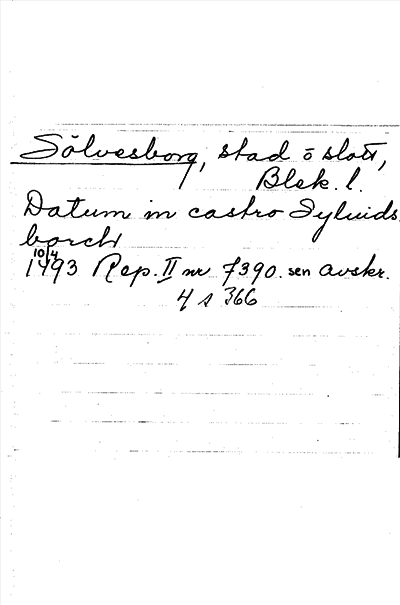 Sölvesborg, stad o slott,
Blek. l.
Datum in castro Syluids
borch
10/4
1493 Rep. II nr 7390. sen avskr.
4 s 366